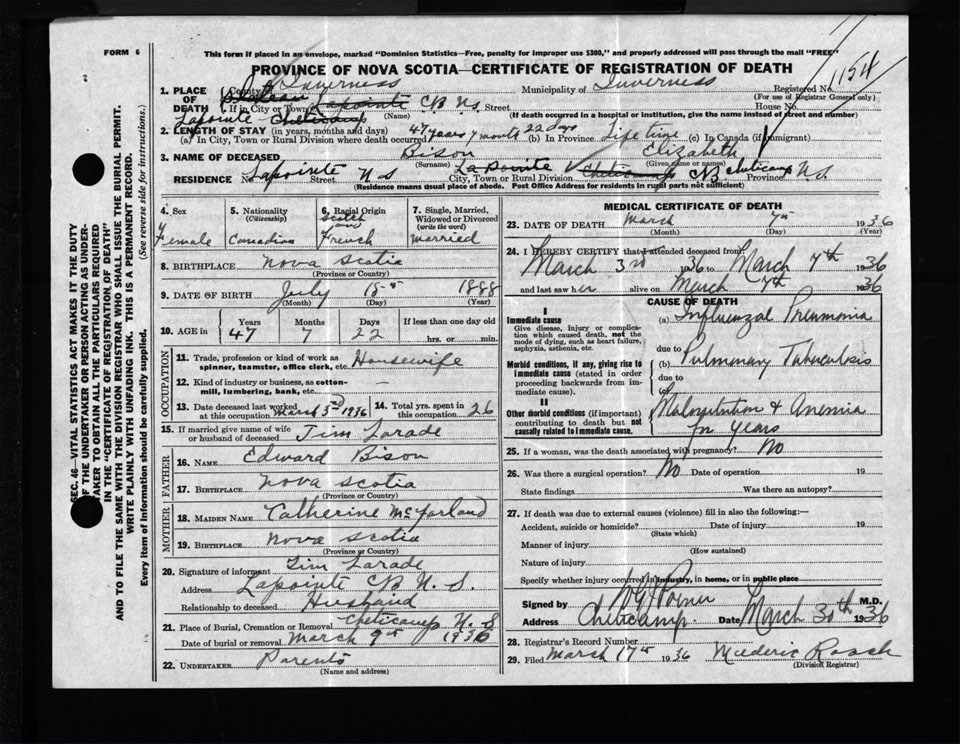 FORM 6
This form if placed in an envelope, marked "Dominion Statistics—Free, penalty for improper use $300," and properly addressed will pass through the mail "FREE"
PROVINCE OF NOVA SCOTIA—CERTIFICATE OF REGISTRATION OF DEATH
1154
1. PLACE OF DEATH County of Inverness Municipality of Inverness Registered No.
(For use of Registrar General only)
If in City or Town Lapointe CB N.s. Street House No.
(Name) (If death occurred in a hospital or institution, give the name instead of street and number)
Lapointe Cheticamp
2. LENGTH OF STAY (in years, months and days)
(a) In City, Town or Rural Division where death occurred 47 years 7 month 22 days (b) In Province Life time (c) In Canada (if immigrant)
3. NAME OF DECEASED Bison Elizabeth
(Surname) (Given name or names)
RESIDENCE No. Lapointe Street N s City, Town or Rural Division La pointe Cheticamp CB cheticamp Province N.s
(Residence means usual place of abode. Post Office Address for residents in rural parts not sufficient)
4. Sex
Female
5. Nationality
(Citizenship)
Canadian
6. Racial Origin
Scotch
and
French
7. Single, Married, Widowed or Divorced
(write the word)
married
8. BIRTHPLACE Nova Scotia
(Province or Country)
9. DATE OF BIRTH July 15 1888
(Month) (Day) (Year)
10. AGE in Years Months Days If less than one day old
47 7 22 hrs. or min.
OCCUPATION
11. Trade, profession or kind of work as spinner, teamster, office clerk, etc. Housewife
12. Kind of industry or business, as cotton-mill, lumbering, bank, etc. —
13. Date deceased last worked at this occupation March 3rd 1936
14. Total yrs. spent in this occupation 26
15. If married give name of wife or husband of deceased Tim Larade
FATHER
16. NAME Edward Bison
17. BIRTHPLACE Nova Scotia
(Province or Country)
MOTHER
18. MAIDEN NAME Catherine McFarland
19. BIRTHPLACE Nova Scotia
(Province or Country)
20. Signature of informant Tim Larade
Address Lapointe CB N. S.
Relationship to deceased Husband
21. Place of Burial, Cremation or Removal Cheticamp N. S
Date of burial or removal March 9th 1936
22. UNDERTAKER Parents
(Name and address)
MEDICAL CERTIFICATE OF DEATH
23. DATE OF DEATH March 7th 1936
(Month) (Day) (Year)
24. I HEREBY CERTIFY that I attended deceased from
March 3rd 1936 to March 7th 1936
and last saw her alive on March 7th 1936
CAUSE OF DEATH
I
Immediate cause
Give disease, injury or complication which caused death, not the mode of dying, such as heart failure, asphyxia, asthenia, etc.
(a) Influenzal Pneumonia
due to
Morbid conditions, if any, giving rise to immediate cause (stated in order proceeding backwards from immediate cause).
(b) Pulmonary Tuberculosis
due to
(c)
II
Other morbid conditions (if important) contributing to death but not causally related to immediate cause.
Malnutrition & Anemia
for years
25. If a woman, was the death associated with pregnancy? No
26. Was there a surgical operation? No Date of operation 19
State findings Was there an autopsy?
27. If death was due to external causes (violence) fill in also the following:—
Accident, suicide or homicide? Date of injury 19
(State which)
Manner of injury
(How sustained)
Nature of injury
Specify whether injury occurred in industry, in home, or in public place
Signed by M.D.
Address Cheticamp Date March 30th 1936
28. Registrar's Record Number
29. Filed March 17th 1936 Mederic Roach
(Division Registrar)
SEC. 46—VITAL STATISTICS ACT MAKES IT THE DUTY
OF THE UNDERTAKER OR PERSON ACTING AS UNDER-
TAKER TO OBTAIN ALL THE PARTICULARS REQUIRED
IN THE "CERTIFICATE OF REGISTRATION OF DEATH"
AND TO FILE THE SAME WITH THE DIVISION REGISTRAR WHO SHALL ISSUE THE BURIAL PERMIT.
WRITE PLAINLY WITH UNFADING INK. THIS IS A PERMANENT RECORD.
Every item of information should be carefully supplied. (See reverse side for instructions.)